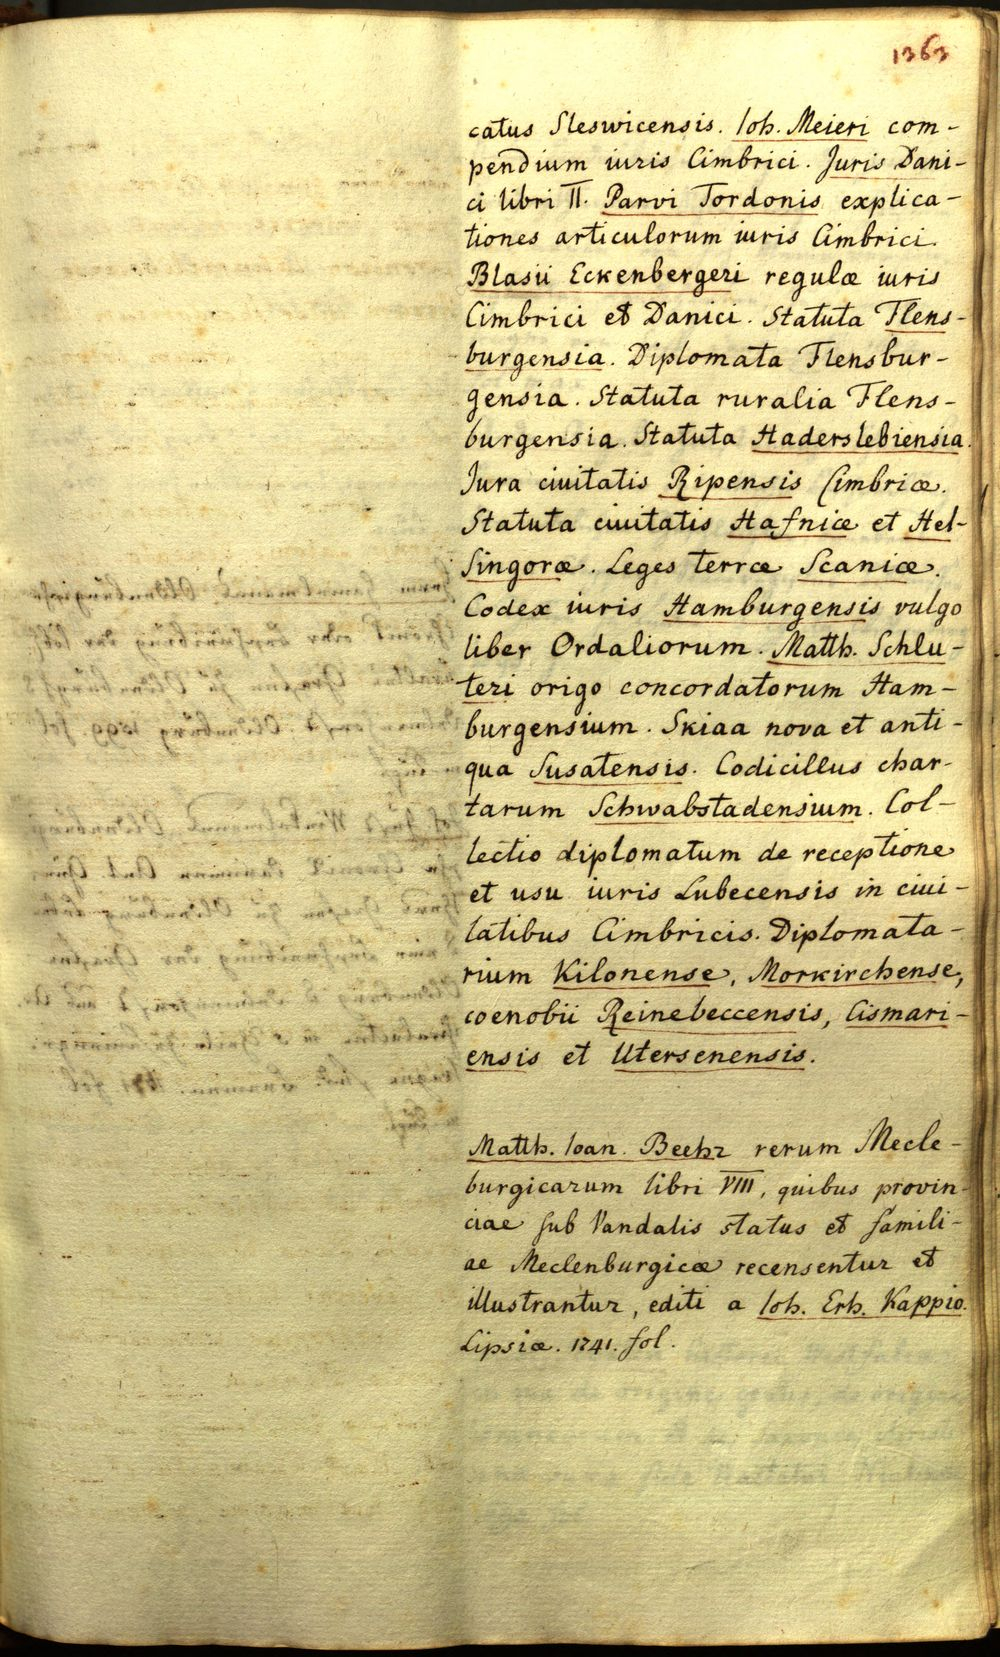 1363
catus Sleswicensis. Ioh. Meieri com-
pendium iuris Cimbrici. Juris Dani-
ci libri II. Parvi Tordonis explica-
tiones articulorum iuris Cimbrici.
Blasii Eckenbergeri regulæ iuris
Cimbrici et Danici. Statuta Flens-
burgensia. Diplomata Flensbur-
gensia. Statuta ruralia Flens-
burgensia. Statuta Haderslebiensia.
Jura ciuitatis Ripensis Cimbricæ.
Statuta ciuitatis Hafniæ et Hel-
singoræ. Leges terræ Scaniæ.
Codex iuris Hamburgensis vulgo
liber Ordaliorum. Matth. Schlu-
teri origo concordatorum Ham-
burgensium. Skiaa nova et anti-
qua Susatensis. Codicillus char-
tarum Schwabstadensium. Col-
lectio diplomatum de receptione
et usu iuris Lubecensis in ciui-
tatibus Cimbricis. Diplomata-
rium Kilonense, Morkirchense,
coenobii Reinebeccensis, Cismari-
ensis et Utersenensis.
Matth. Ioan. Beehr rerum Mecle-
burgicarum libri VIII, quibus provin-
ciae sub Vandalis status et famili-
ae Meclenburgicæ recensentur et
illustrantur, editi a Ioh. Erh. Kappio.
Lipsiæ. 1741. fol.